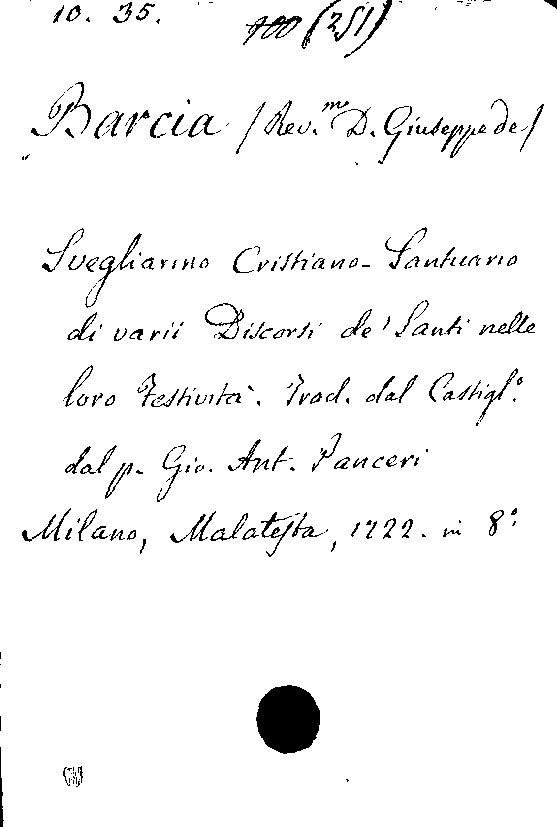 10. 35.
100 (251)
Barcia / Rev.mo D. Giuseppe de /
Svegliarino Cristiano - Santuario
di varii Discorsi de' Santi nelle
loro Festività. Trad. dal Castigl.o
dal p. Gio. Ant. Panceri
Milano, Malatesta, 1722. in 8.o